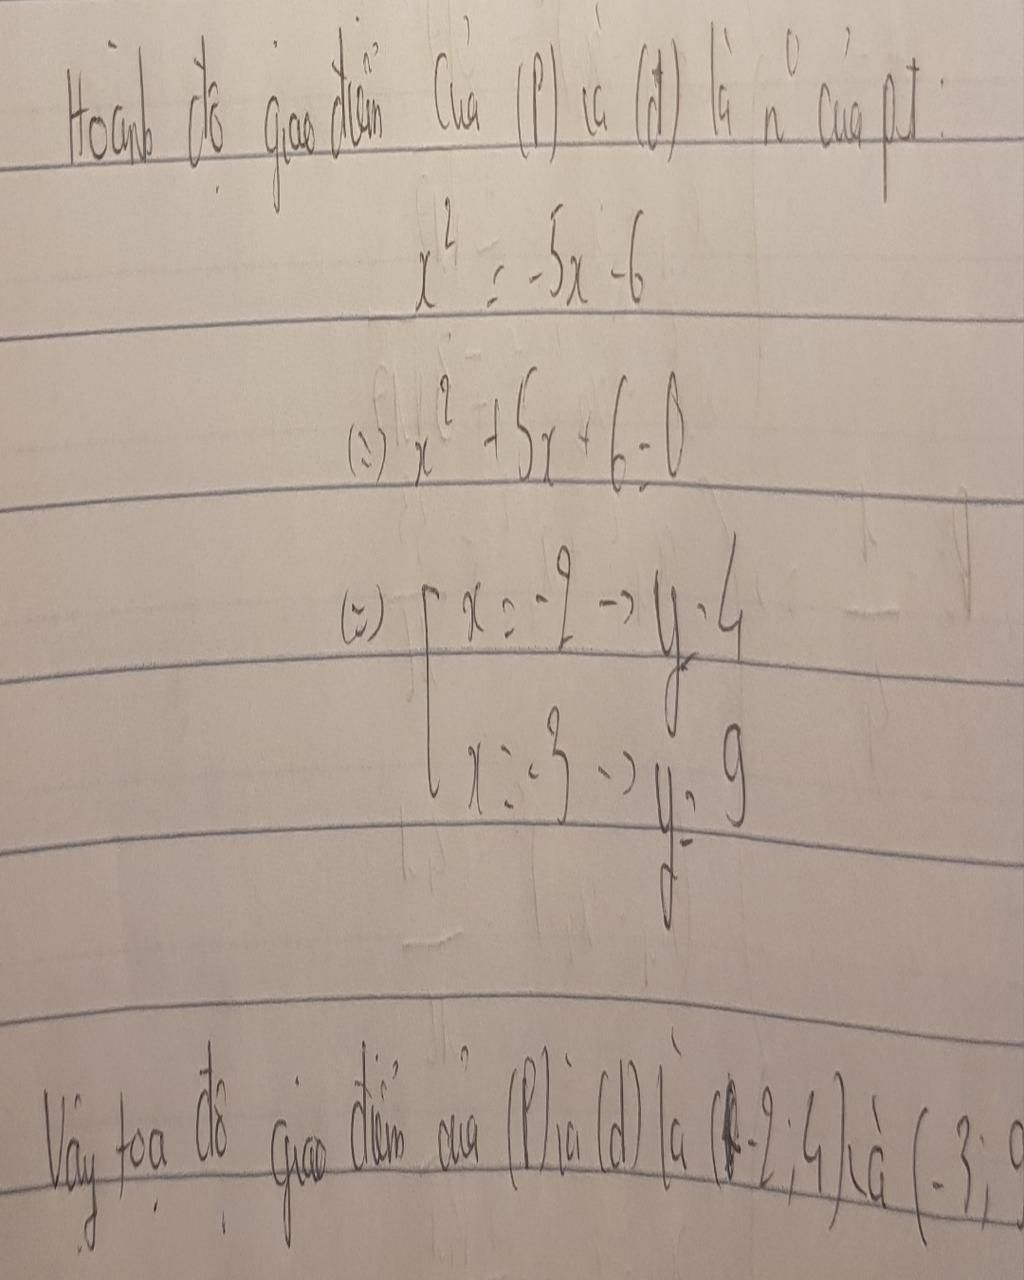 Hoành độ giao điểm của (P) và (d) là n⁰ của pt:
x² = -5x - 6
(=) x² + 5x + 6 = 0
(=) [ x = -2 -> y = 4
x = -3 -> y = 9
Vậy tọa độ giao điểm của (P) và (d) là (-2; 4) và (-3; 9